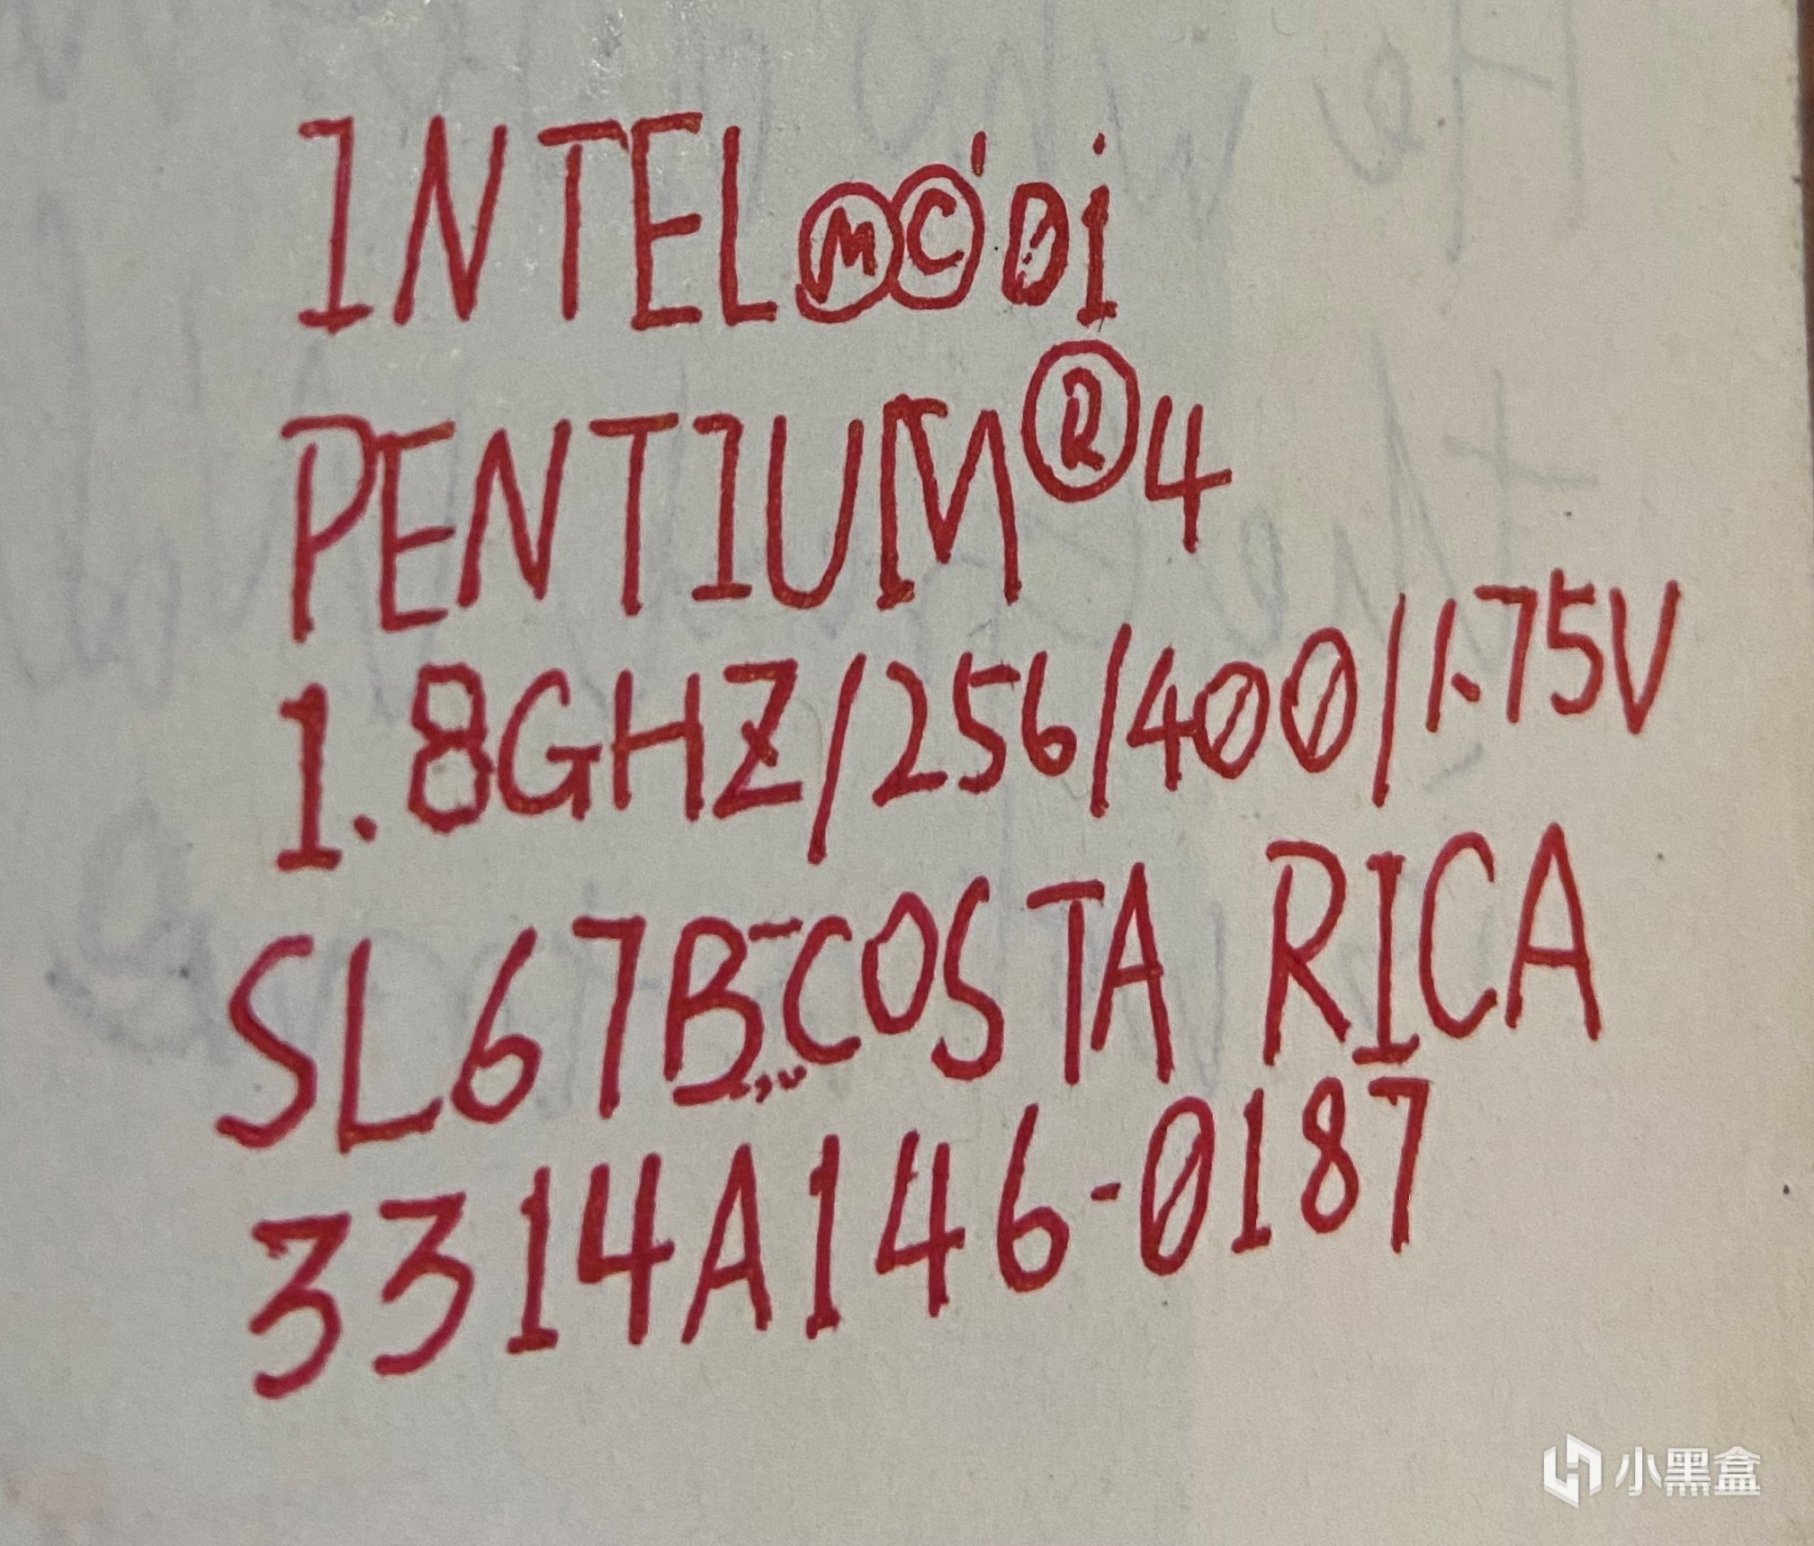 INTELⓂ©'01
PENTIUM®4
1.8GHZ/256/400/1.75V
SL67B COSTA RICA
3314A146-0187
小黑盒